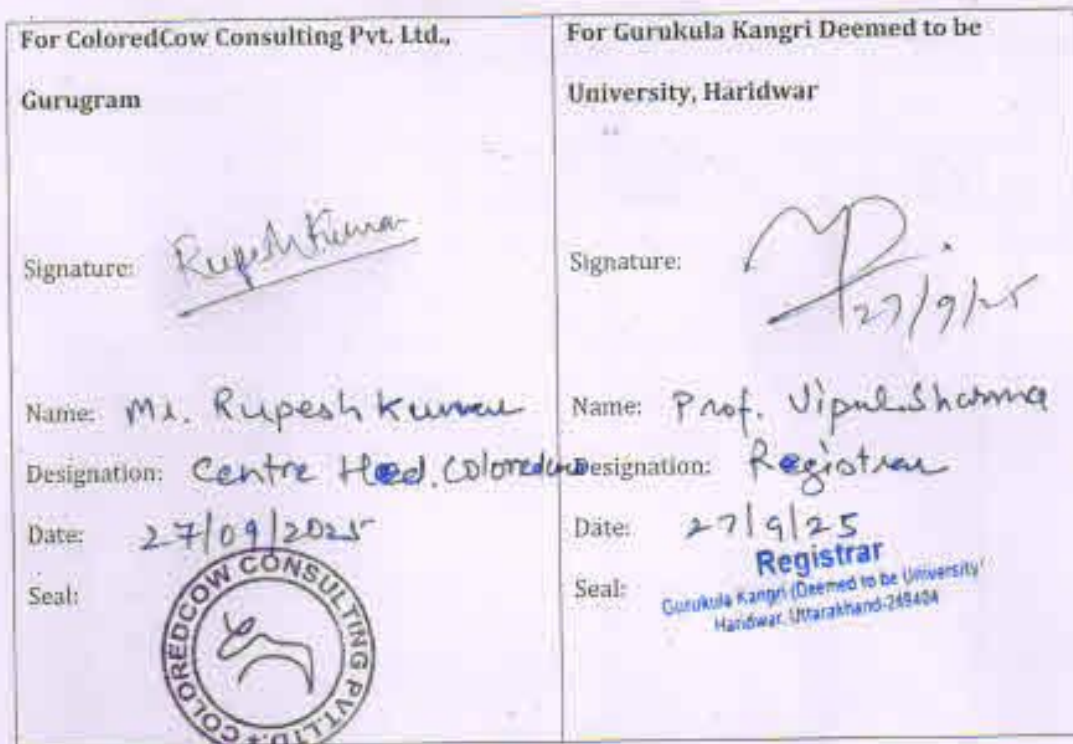 For ColoredCow Consulting Pvt. Ltd.,
Gurugram
Signature: Rupesh Kumar
Name: Mr. Rupesh Kumar
Designation: Centre Head, Coloredcow
Date: 27/09/2025
Seal:
COLOREDCOW CONSULTING PVT. LTD. *
For Gurukula Kangri Deemed to be
University, Haridwar
Signature:
27/9/25
Name: Prof. Vipul Sharma
Designation: Registrar
Date: 27/9/25
Registrar
Seal:
Gurukula Kangri (Deemed to be University)
Haridwar, Uttarakhand-249404